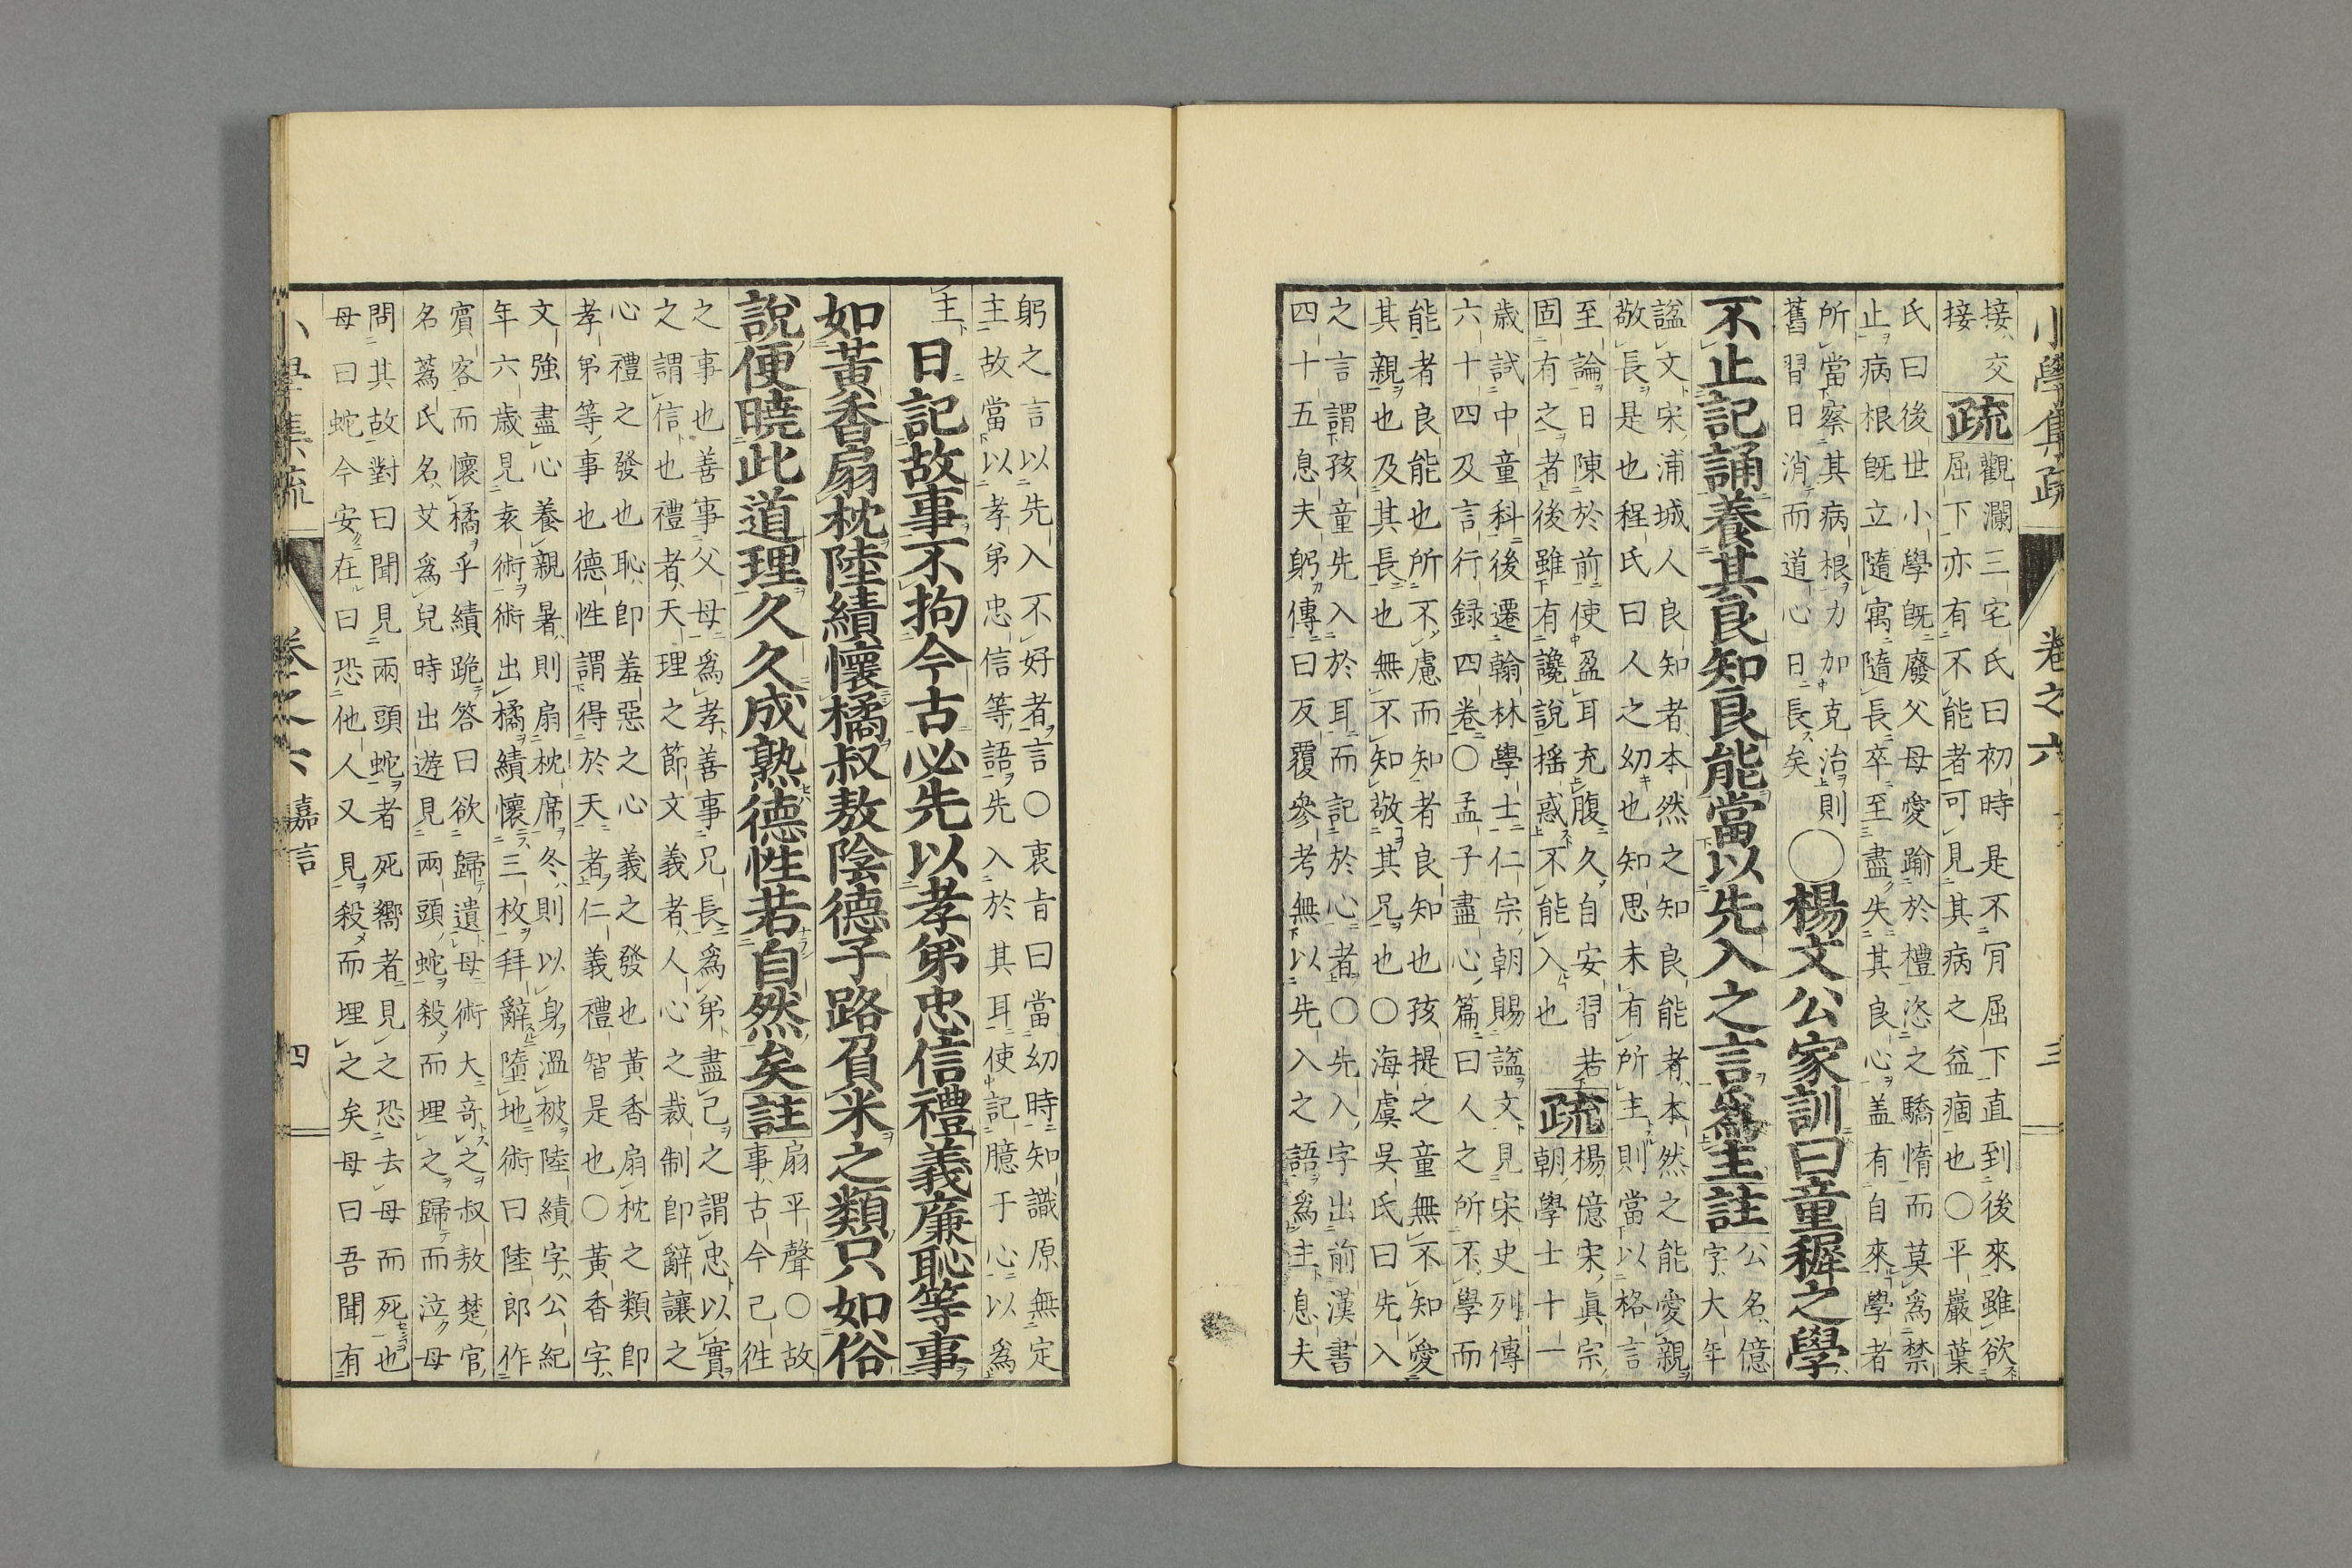 小學集疏 卷之六 三
接、交
接
疏
觀瀾三宅氏曰初時是不肯屈下直到後來雖欲
屈下亦有不能者可見其病之益痼也〇平巖葉
氏曰後世小學旣廢父母愛踰於禮恣之驕惰而莫爲禁
止病根旣立隨寓隨長卒至盡失其良心蓋有自來學者
所當察其病根力加克治則
舊習日消而道心日長矣
◯楊文公家訓曰童穉之學
不止記誦養其良知良能當以先入之言爲主註
公名億
字大年
諡文宋浦城人良知者本然之知良能者本然之能愛親
敬長是也程氏曰人之幼也知思未有所主則當以格言
至論日陳於前使盈耳充腹久自安習若
固有之者後雖有讒說揺惑不能入也
疏
楊億宋眞宗
朝學士十一
歳試中童科後遷翰林學士仁宗朝賜諡文見宋史列傳
六十四及言行録四卷〇孟子盡心篇曰人之所不學而
能者良能也所不慮而知者良知也孩提之童無不知愛
其親也及其長也無不知敬其兄也〇海虞吳氏曰先入
之言謂孩童先入於耳而記於心者〇先入字出前漢書
四十五息夫躬傳曰反覆參考無以先入之語爲主息夫
躬之言以先入不好者言〇衷旨曰當幼時知識原無定
主故當以孝弟忠信等語先入於其耳使記臆于心以爲
主
日記故事不拘今古必先以孝弟忠信禮義廉恥等事
如黃香扇枕陸績懷橘叔敖陰德子路負米之類只如俗
說便曉此道理久久成熟德性若自然矣註
扇平聲〇故
事、古今已徃
之事也善事父母爲孝善事兄長爲弟盡己之謂忠以實
之謂信也禮者天理之節文義者人心之裁制卽辭讓之
心禮之發也恥卽羞惡之心義之發也黃香扇枕之類卽
孝弟等事也德性謂得於天者仁義禮智是也〇黃香字
文強盡心養親暑則扇枕席冬則以身溫被陸績字公紀
年六歳見袁術術出橘績懷三枚拜辭墮地術曰陸郎作
賓客而懷橘乎績跪答曰欲歸遺母術大竒之叔敖楚官
名蒍氏名艾爲兒時出遊見兩頭蛇殺而埋之歸而泣母
問其故對曰聞見兩頭蛇者死嚮者見之恐去母而死也
母曰蛇今安在曰恐他人又見殺而埋之矣母曰吾聞有
小學集疏 卷之六 嘉言 四